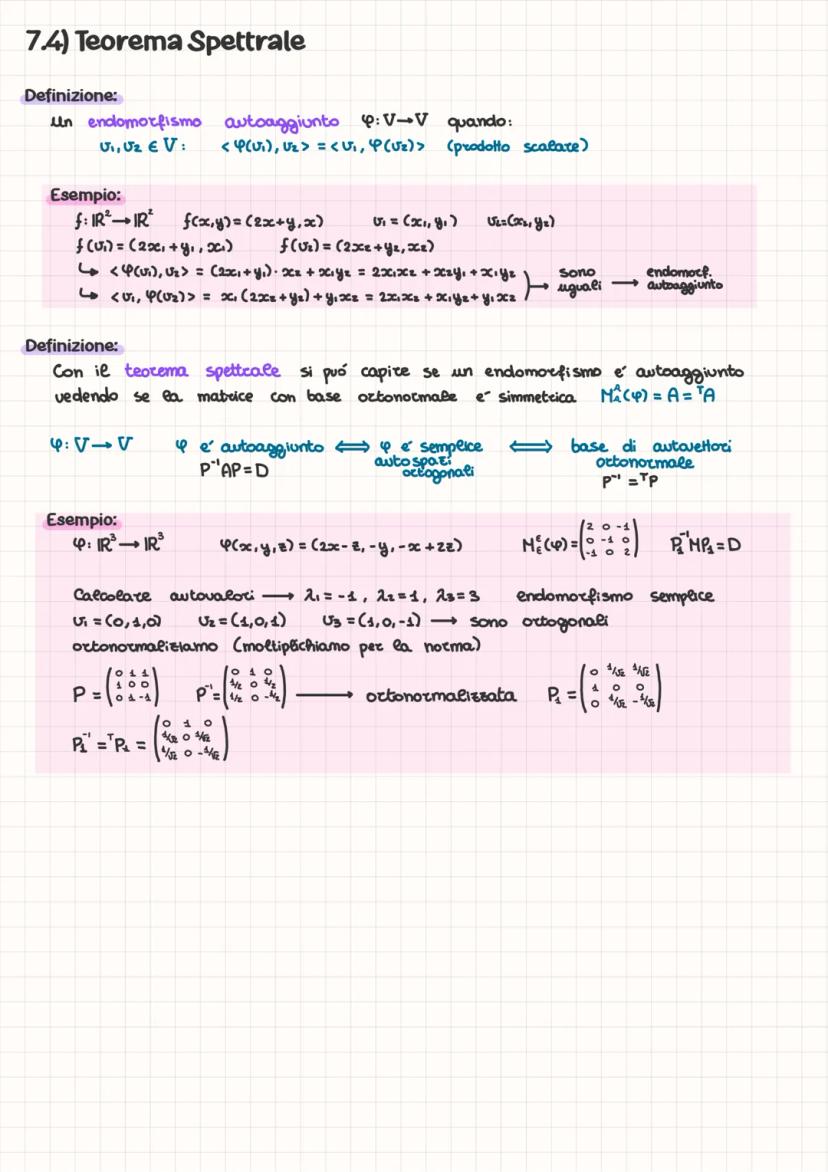 7.4) Teorema Spettrale
Definizione:
un endomorfismo autoaggiunto φ: V→V quando:
v₁, v₂ ∈ V: <φ(v₁), v₂> = <v₁, φ(v₂)> (prodotto scalare)
Esempio:
f: ℝ² → ℝ² f(x,y) = (2x+y, x) v₁ = (x₁, y₁) v₂=(x₂, y₂)
f(v₁) = (2x₁ + y₁, x₁) f(v₂) = (2x₂+y₂, x₂)
↳ <φ(v₁), v₂> = (2x₁+y₁)· x₂ + x₁y₂ = 2x₁x₂ + x₂y₁ + x₁y₂
↳ <v₁, φ(v₂)> = x₁(2x₂+y₂) + y₁x₂ = 2x₁x₂ + x₁y₂ + y₁x₂
→ sono uguali → endomorf. autoaggiunto
Definizione:
Con il teorema spettrale si puó capire se un endomorfismo é autoaggiunto
vedendo se la matrice con base ortonormale é simmetrica M^A_A(φ) = A = ᵀA
φ: V → V φ é autoaggiunto ⟺ φ é semplice ⟺ base di autovettori
autospazi ortogonali ortonormale
P⁻¹AP = D P⁻¹ = ᵀP
Esempio:
φ: ℝ³ → ℝ³ φ(x,y,z) = (2x-z, -y, -x+2z) M^ε_ε(φ) = (2 0 -1 / 0 -1 0 / -1 0 2) P₁⁻¹MP₁ = D
Calcolare autovalori → λ₁ = -1, λ₂ = 1, λ₃ = 3 endomorfismo semplice
v₁ = (0,1,0) v₂ = (1,0,1) v₃ = (1,0,-1) → sono ortogonali
ortonormalizziamo (moltiplichiamo per la norma)
P = (0 1 1 / 1 0 0 / 0 1 -1) P⁻¹ = (0 1 0 / 1/2 0 1/2 / 1/2 0 -1/2) → ortonormalizzata P₁ = (0 1/√2 1/√2 / 1 0 0 / 0 1/√2 -1/√2)
P₁⁻¹ = ᵀP₁ = (0 1 0 / 1/√2 0 1/√2 / 1/√2 0 -1/√2)